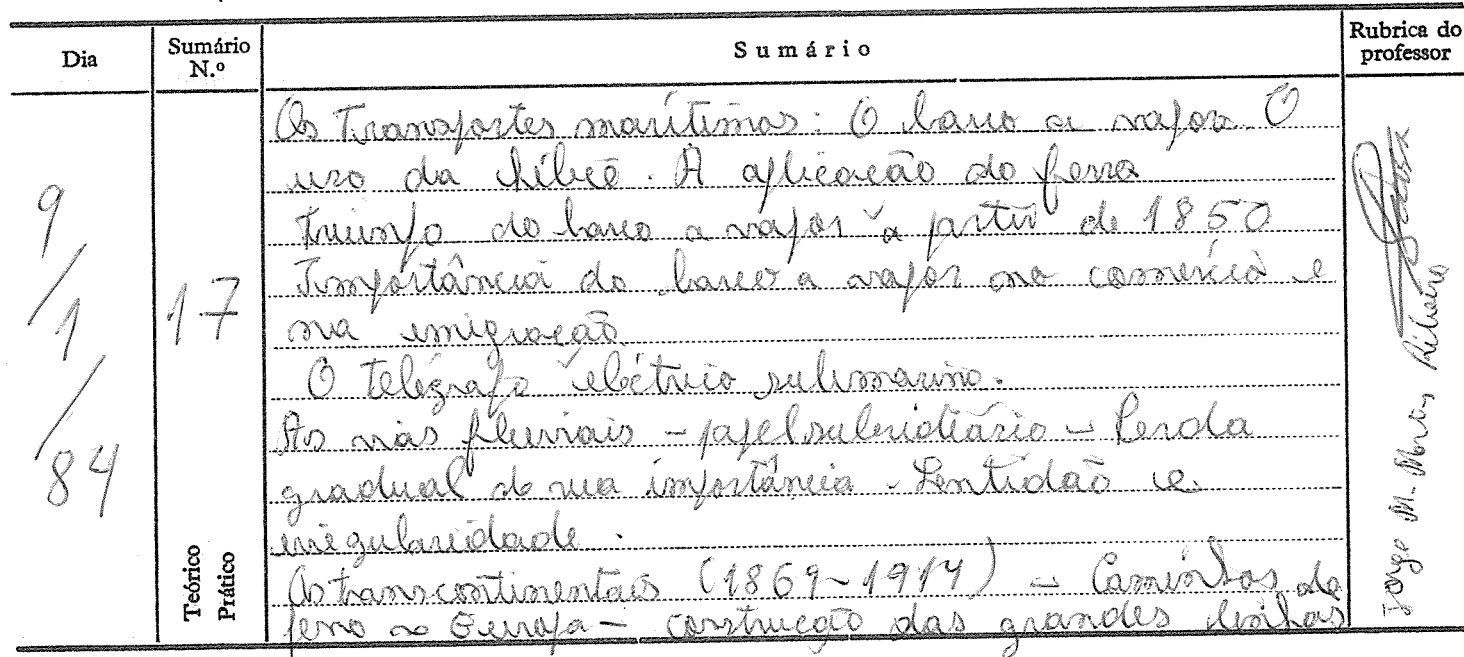 Dia
Sumário N.º
Sumário
Rubrica do professor
9/1/84
17
Teórico
Prático
Os Transportes marítimos: O barco a vapor. O
uso da hélice. A aplicação do ferro
Triunfo do barco a vapor a partir de 1850
Importância do barco a vapor no comércio e
na emigração.
O telégrafo eléctrico submarino.
As vias fluviais – papel subsidiário – Perda
gradual de sua importância – Lentidão e
irregularidade.
Os transcontinentais (1869-1914) – Caminhos de
ferro na Europa – construção das grandes linhas
Jorge M. Ribeiro